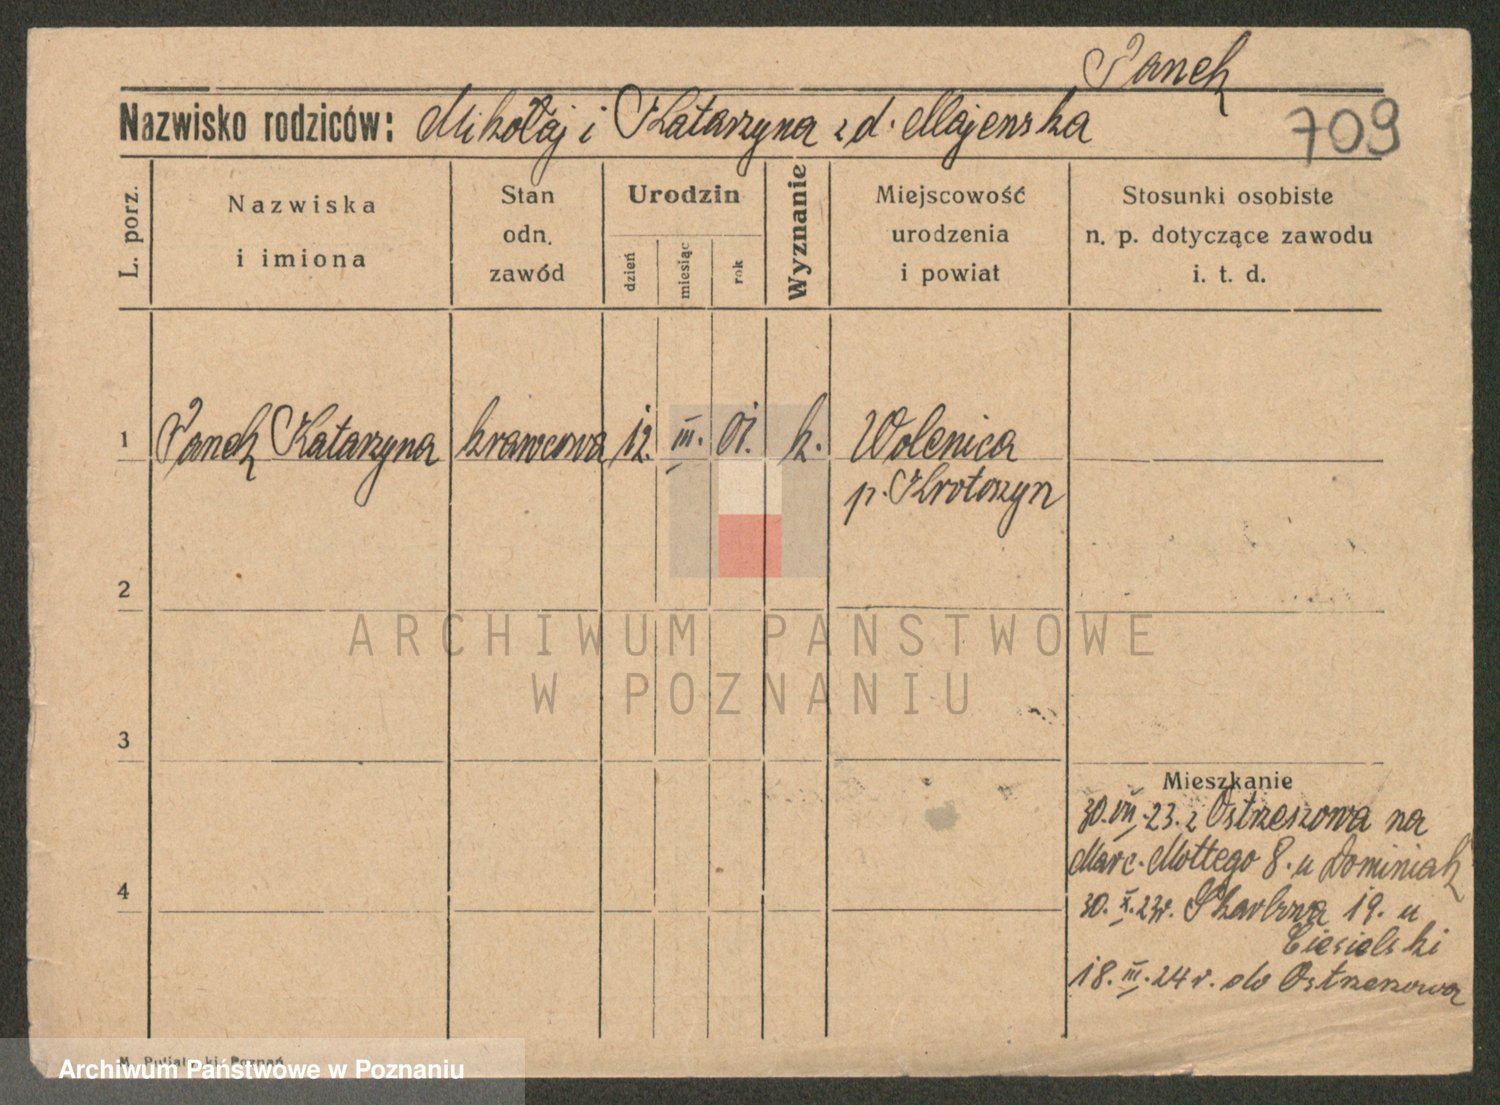 Panek
Nazwisko rodziców: Mikołaj i Katarzyna z d. Majenska
709
L. porz.
Nazwiska
i imiona
Stan
odn.
zawód
Urodzin
dzień
miesiąc
rok
Wyznanie
Miejscowość
urodzenia
i powiat
Stosunki osobiste
n. p. dotyczące zawodu
i. t. d.
1 Panek Katarzyna krawcowa 12. III. 01. k. Wolenica
p. Krotoszyn
2
3
4
Mieszkanie
30. VII. 23. z Ostrzeszowa na
Marc. Mottego 8. u Dominiak
30. X. 23r. Skarbowa 19. u
Ciesielski
18. III. 24 r. do Ostrzeszowa
ARCHIWUM PAŃSTWOWE
W POZNANIU
Poznań
Archiwum Państwowe w Poznaniu